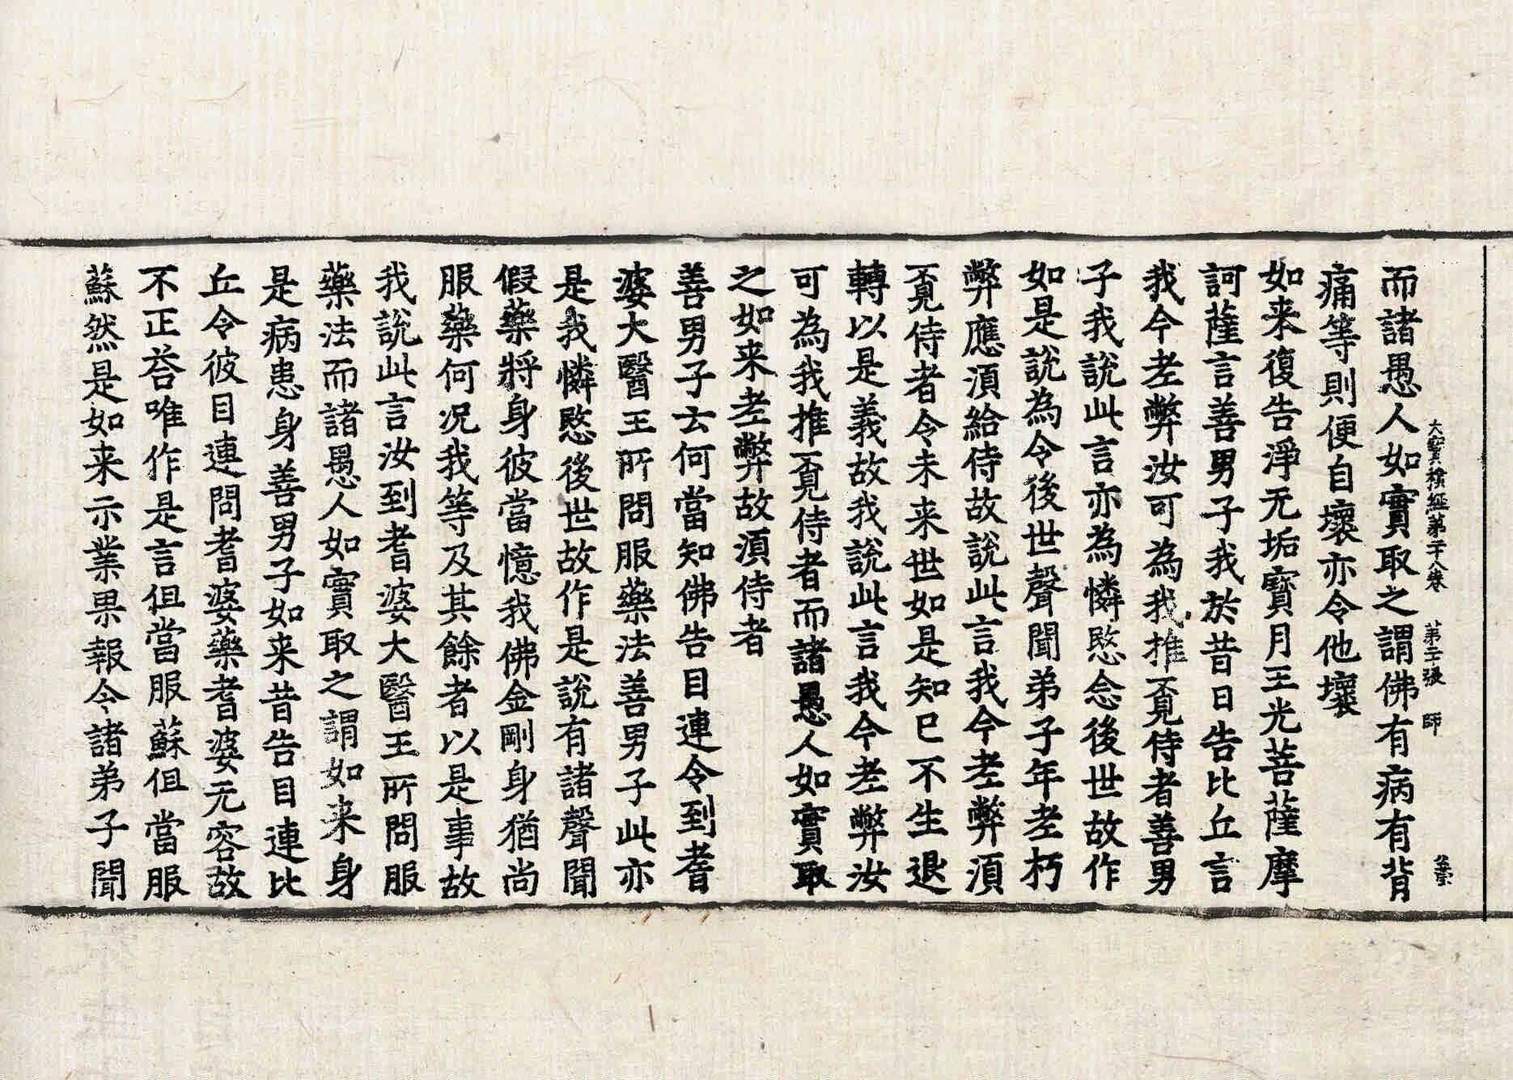 大寶積經第二十八卷　第二十張　師
而諸愚人如實取之謂佛有病有背
痛等則便自壞亦令他壞
如来復告淨无垢寶月王光菩薩摩
訶薩言善男子我於昔日告比丘言
我今老弊汝可為我推覓侍者善男
子我說此言亦為憐愍念後世故作
如是說為令後世聲聞弟子年老朽
弊應須給侍故說此言我今老弊須
覓侍者令未来世如是知已不生退
轉以是義故我說此言我今老弊汝
可為我推覓侍者而諸愚人如實取
之如来老弊故須侍者
善男子云何當知佛告目連令到耆
婆大醫王所問服藥法善男子此亦
是我憐愍後世故作是說有諸聲聞
假藥將身彼當憶我佛金剛身猶尚
服藥何况我等及其餘者以是事故
我說此言汝到耆婆大醫王所問服
藥法而諸愚人如實取之謂如来身
是病患身善男子如来昔告目連比
丘令彼目連問耆婆藥耆婆无容故
不正荅唯作是言但當服蘇但當服
蘇然是如来示業果報令諸弟子聞